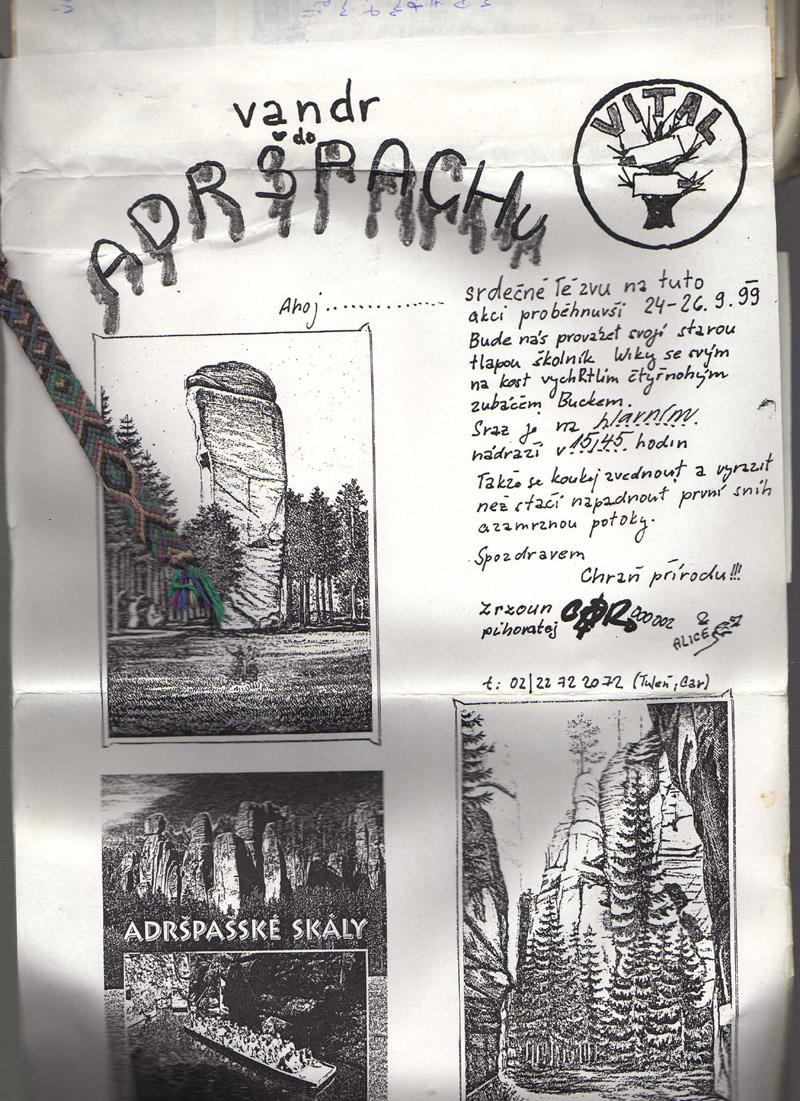 vandr
do
ADRŠPACHu
VITAL
Ahoj..............
srdečné Tě zvu na tuto
akci proběhnuvší 24-26.9.99
Bude nás provázet svojí starou
tlapou školník Wiky se svým
na kost vychRtlím čtyřnohým
zubáčem Buckem.
Sraz je na hlavním
nádraží v 15,45 hodin
Takže se koukej zvednout a vyrazit
než stačí napadnout první sníh
a zamrznou potoky.
S pozdravem
Chraň přírodu!!!
Zrzoun
pihovatej
ALICE
t: 02/22 72 20 72 (Tuleň, Car)
ADRŠPAŠSKÉ SKÁLY